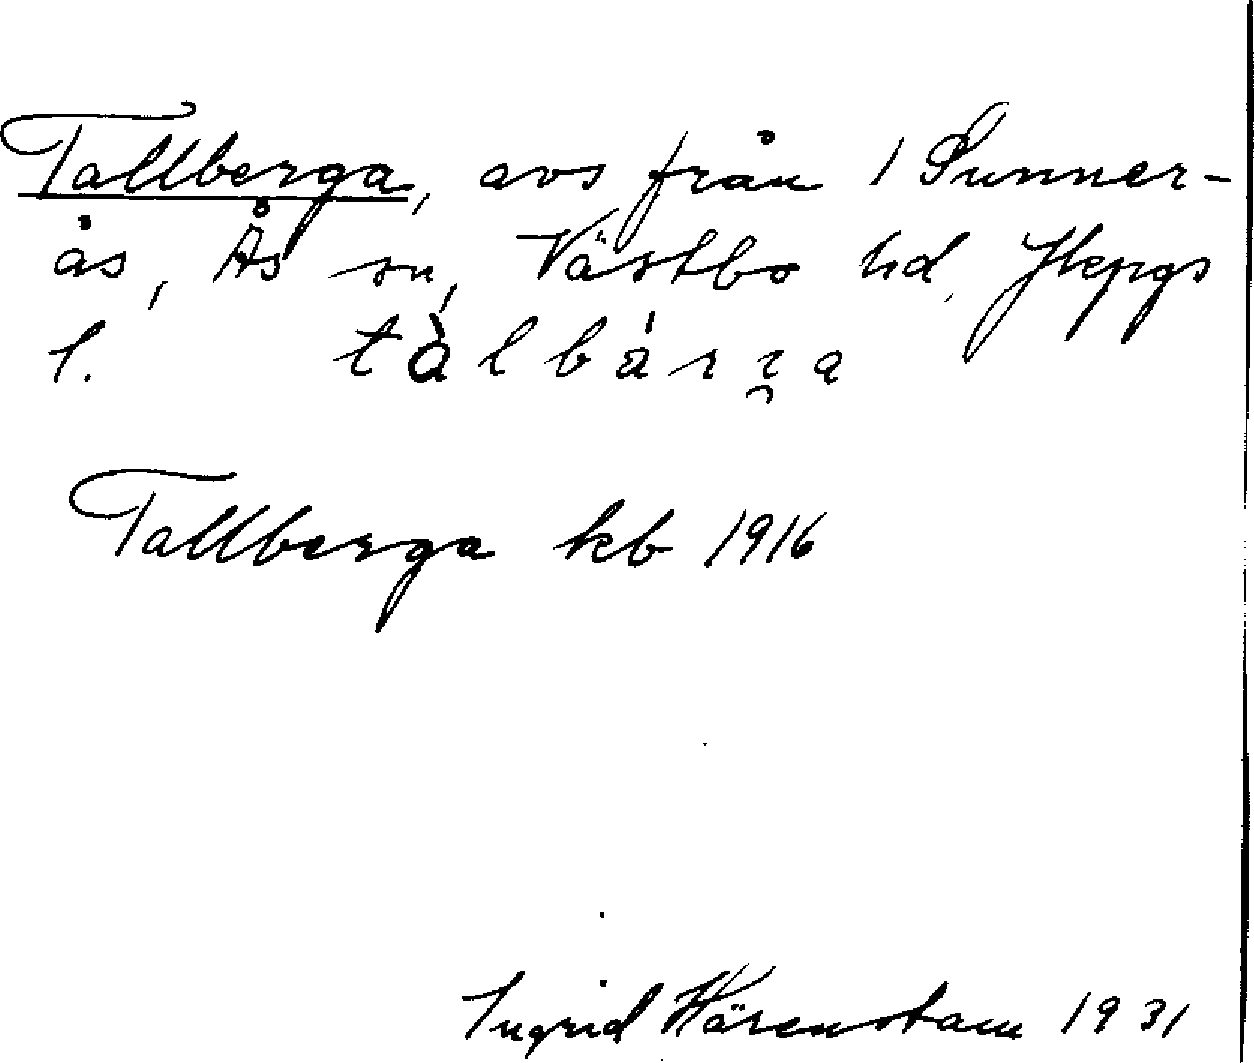 Tallberga, avs från 1 Sunner-
ås, Ås sn, Västbo hd, Jkpgs
l. tàlbárɪ̯a
Tallberga kb 1916
Ingrid Härenstam 1931